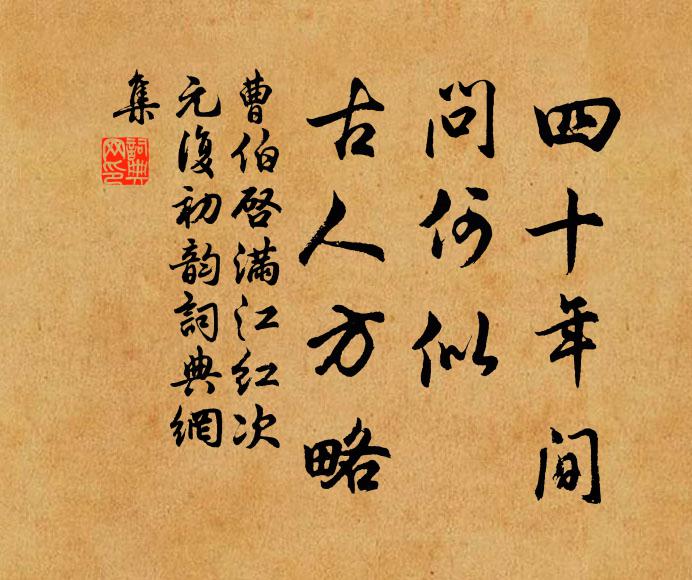 四十年间
问何似
古人方略
曹伯启满江红次
元复初韵詞典網
集
詞典网印